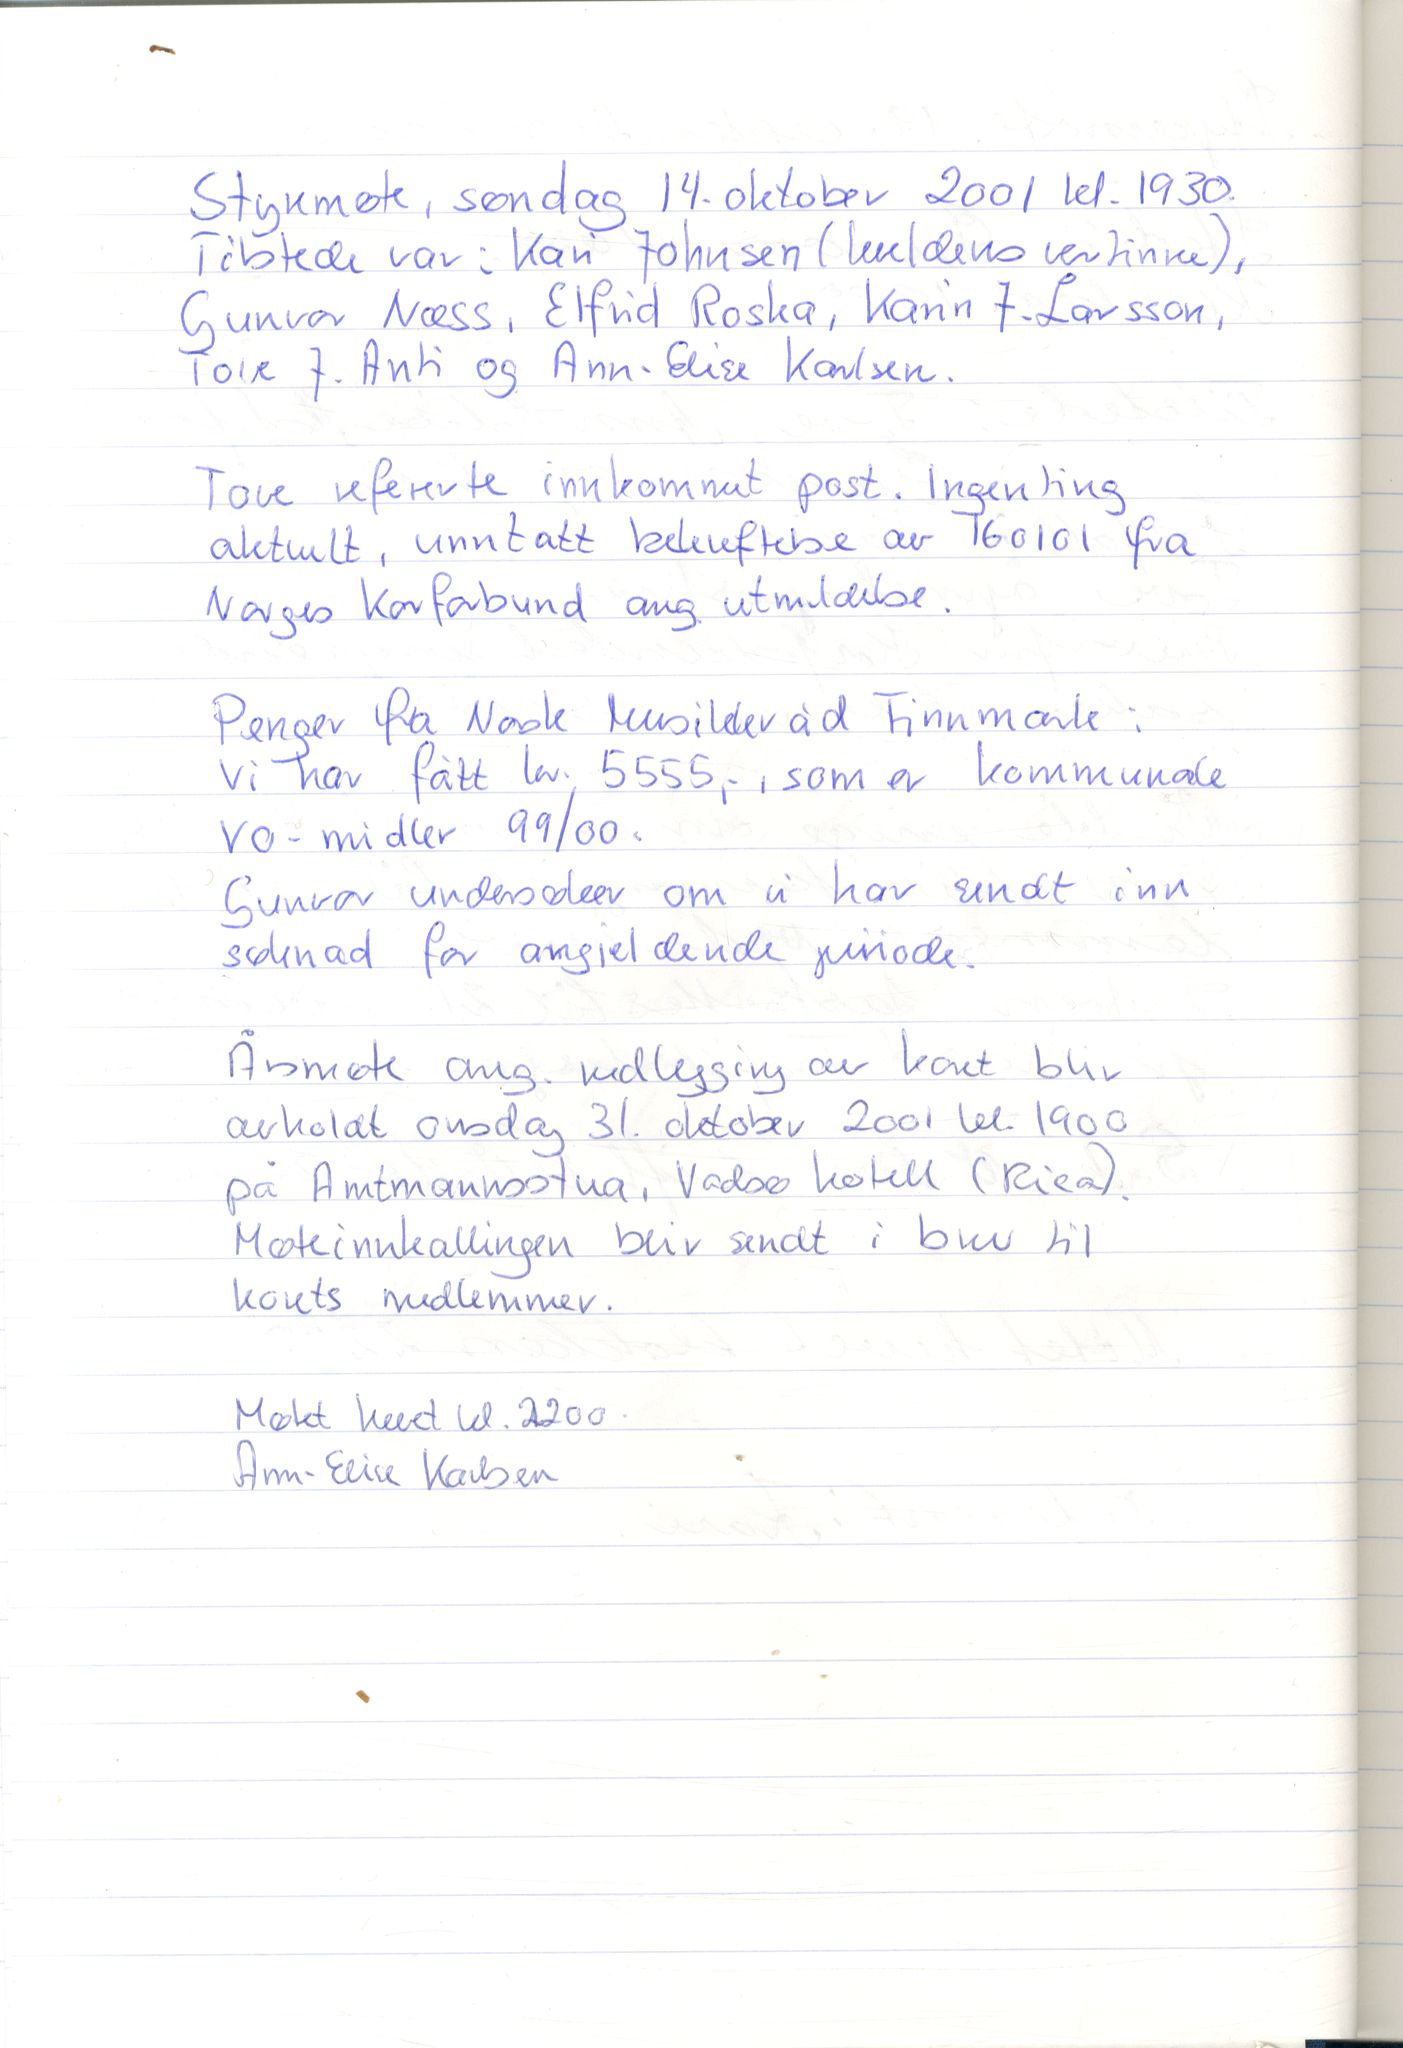 Styremøte, søndag 14. oktober 2001 kl. 1930.
Tilstede var: Kari Johnsen (kveldens vertinne),
Gunvor Næss, Elfrid Roska, Karin J. Larsson,
Tove J. Anti og Ann-Elise Karlsen.
Tove refererte innkommet post. Ingenting
aktuelt, unntatt bekreftelse av 160101 fra
Norges Korforbund ang. utmeldelse.
Penger fra Norsk Musikkråd Finnmark:
Vi har fått kr. 5555,-, som er kommunale
VO-midler 99/00.
Gunvor undersøker om vi har sendt inn
søknad for angjeldende periode.
Årsmøte ang. nedlegging av koret blir
avholdt onsdag 31. oktober 2001 kl. 1900
på Amtmannsstua, Vadsø hotell (Rica).
Møteinnkallingen blir sendt i brev til
korets medlemmer.
Møtet hevet kl. 2200.
Ann-Elise Karlsen